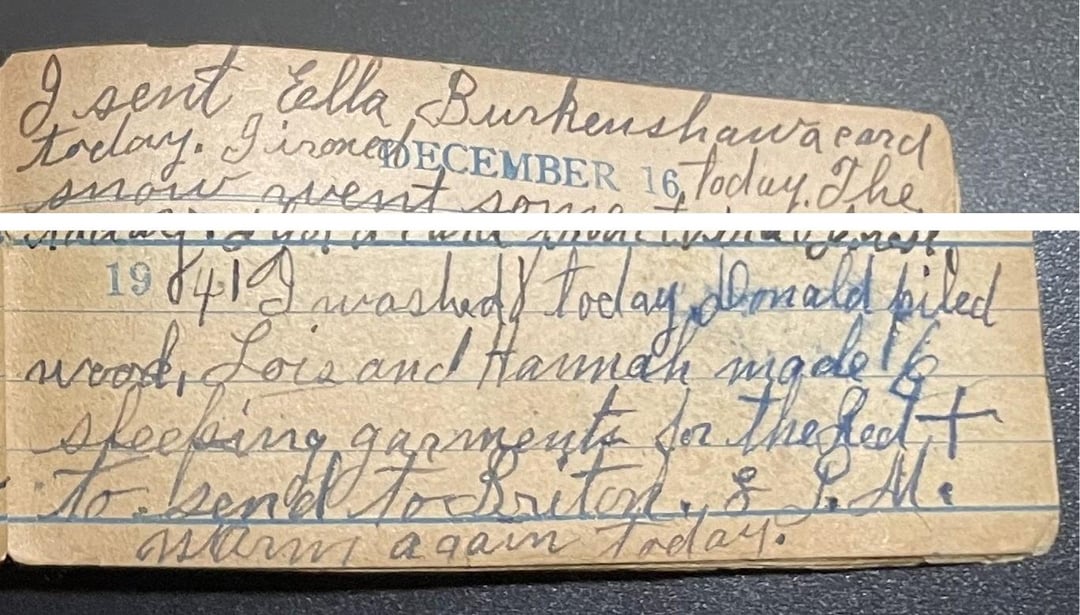 I sent Ella Burkenshaw a card
today. I ironed DECEMBER 16, today. The
snow went some
19 41 I washed today, Donald piled
wood, Lois and Hannah made 16
sleeping garments for the Red +
to send to Briton. 8 P.M.
warm again today.